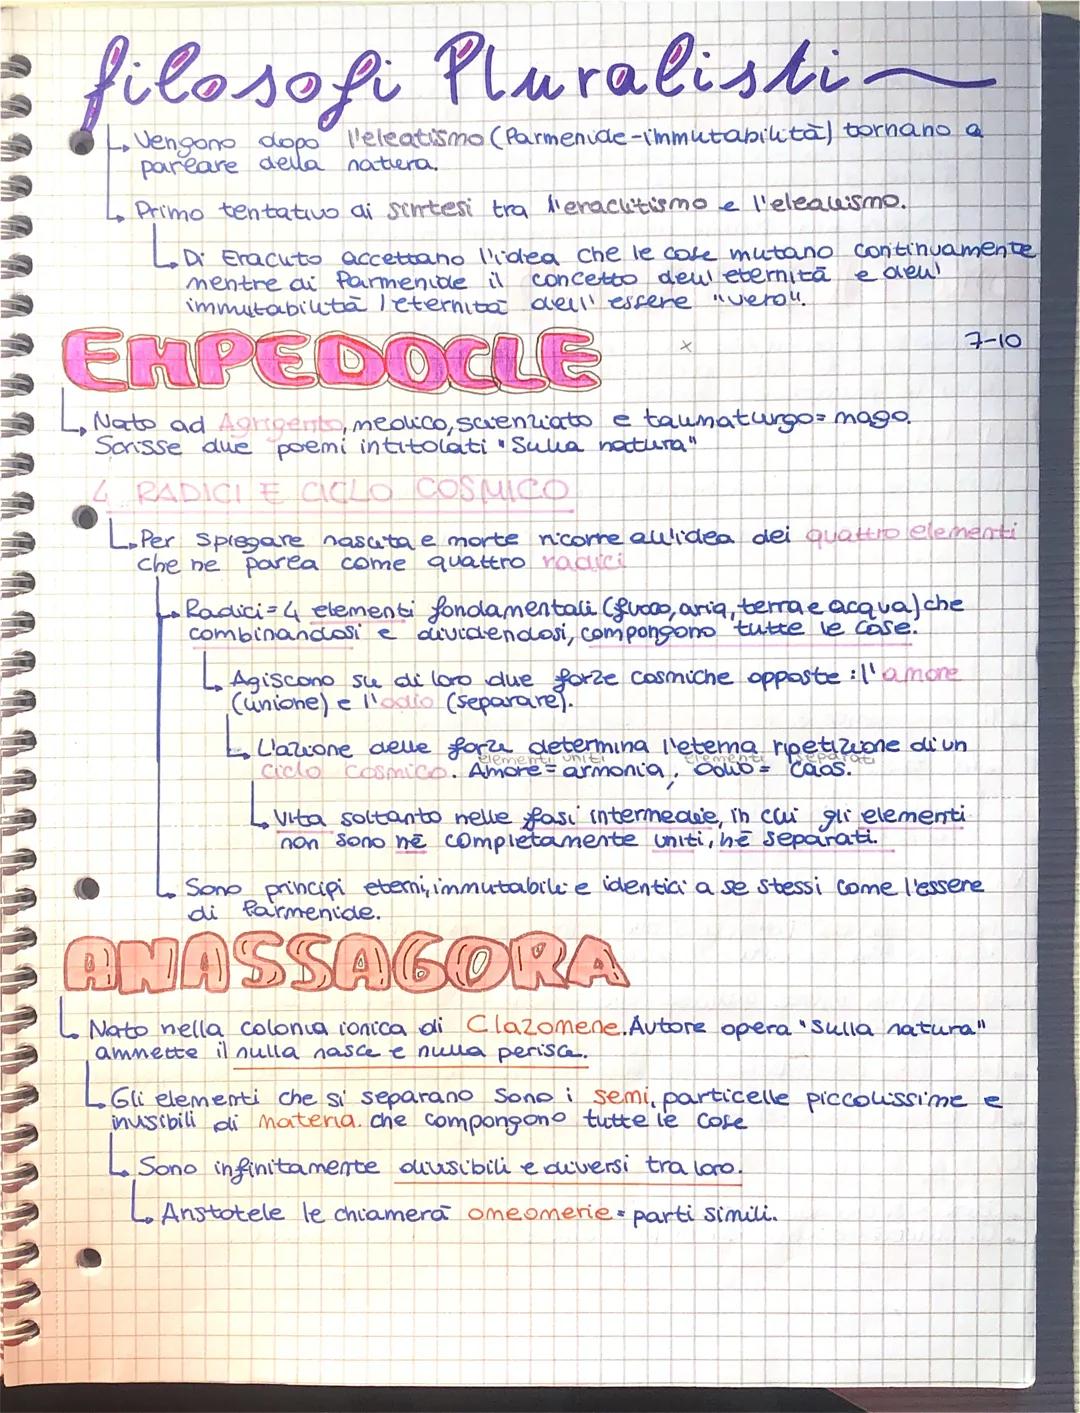 filosofi Pluralisti
Vengono dopo l'eleatismo (Parmenide-immutabilità) tornano a
parlare della natura.
Primo tentativo di sintesi tra l'eraclitismo e l'eleatismo.
Di Eraclito accettano l'idea che le cose mutano continuamente
mentre di Parmenide il concetto dell'eternità e dell'
immutabilità l'eternità dell'essere "vero".
EMPEDOCLE
x 7-10
Nato ad Agrigento, medico, scienziato e taumaturgo= mago.
Scrisse due poemi intitolati "Sulla natura"
4 RADICI E CICLO COSMICO
Per spiegare nascita e morte ricorre all'idea dei quattro elementi
che ne parla come quattro radici
Radici=4 elementi fondamentali (fuoco, aria, terra e acqua) che
combinandosi e dividendosi, compongono tutte le cose.
Agiscono su di loro due forze cosmiche opposte: l'amore
(unione) e l'odio (separare).
L'azione delle forze determina l'eterna ripetizione di un
elementi uniti elementi separati
ciclo cosmico. Amore=armonia, Odio= caos.
Vita soltanto nelle fasi intermedie, in cui gli elementi
non sono nē completamente uniti, nē separati.
Sono principi eterni, immutabili e identici a se stessi come l'essere
di Parmenide.
ANASSAGORA
Nato nella colonia ionica di Clazomene. Autore opera "Sulla natura"
ammette il nulla nasce e nulla perisce.
Gli elementi che si separano sono i semi, particelle piccolissime e
invisibili di materia. che compongono tutte le cose
Sono infinitamente divisibili e diversi tra loro.
Aristotele le chiamerà omeomerie= parti simili.